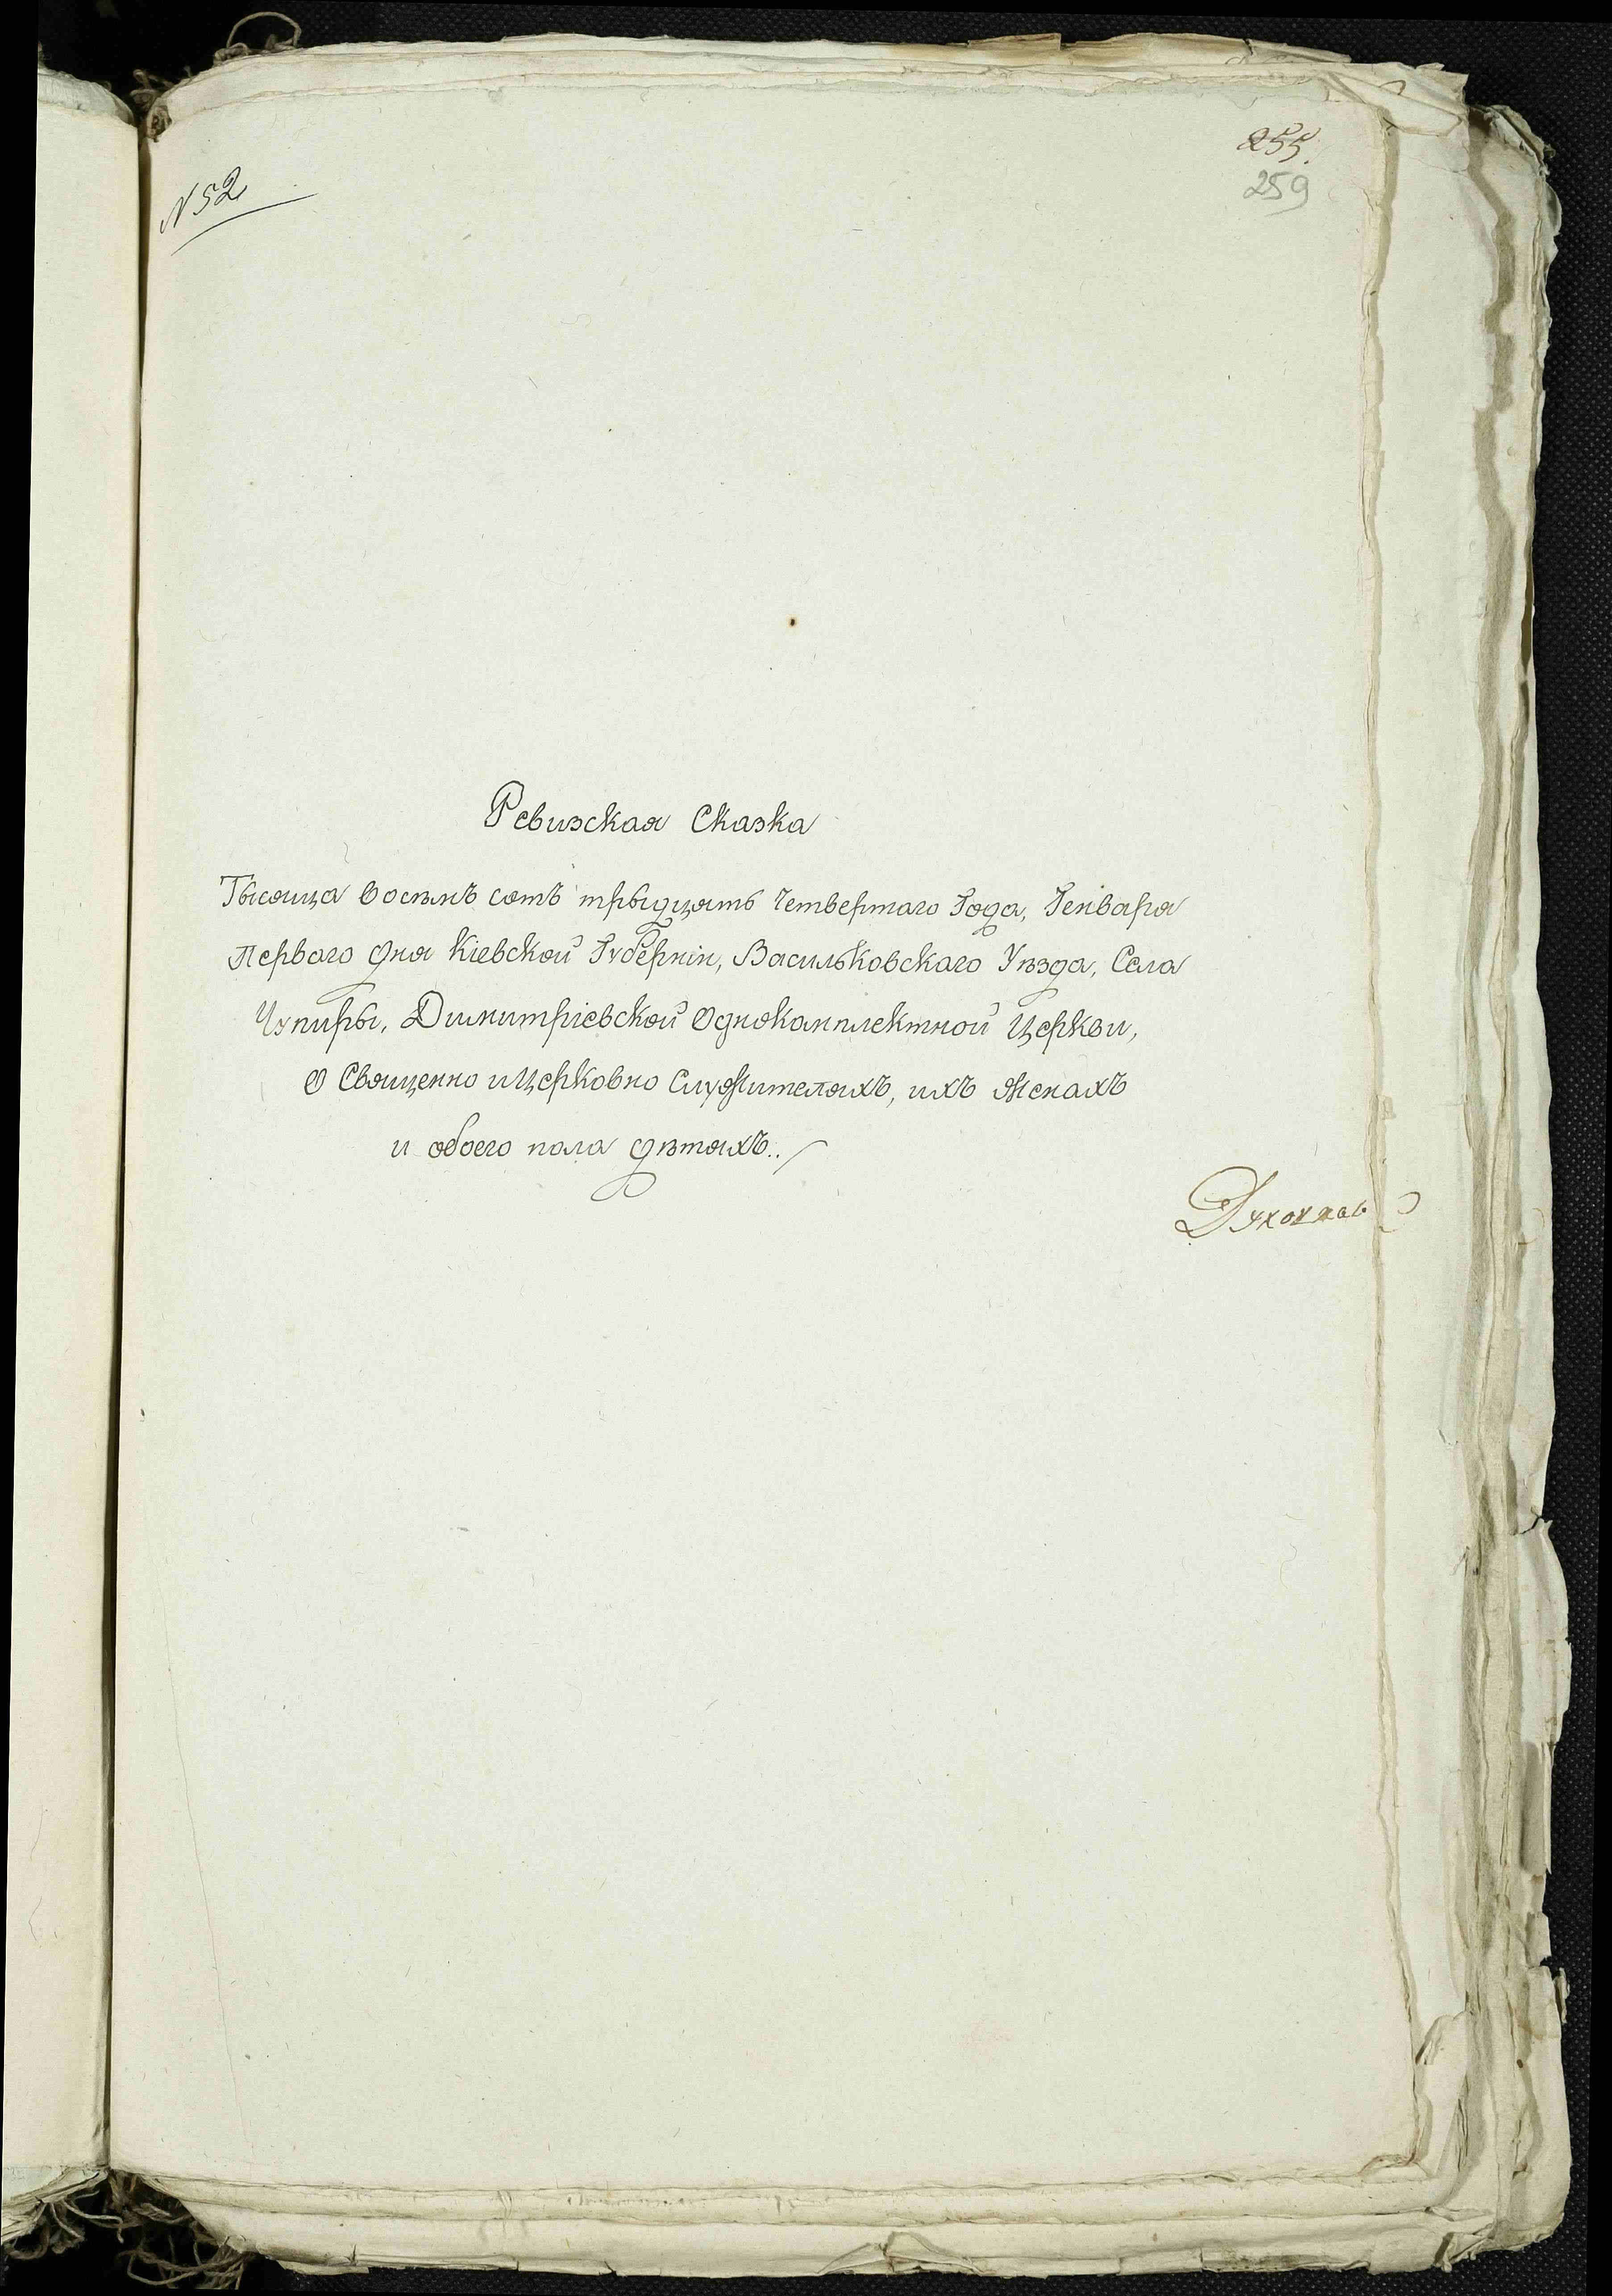 N 52
255.
259
Ревизская Сказка
Тысяща восѣмъ сотъ трыдцять четвертаго Года, Генваря
перваго дня Кіевской Губерніи, Васильковскаго Уѣзда, Села
Чупиры, Димитріевской Однокамплектной Церкви,
О Священно и Церковно Служителяхъ, ихъ женахъ
и обоего пола дѣтяхъ..